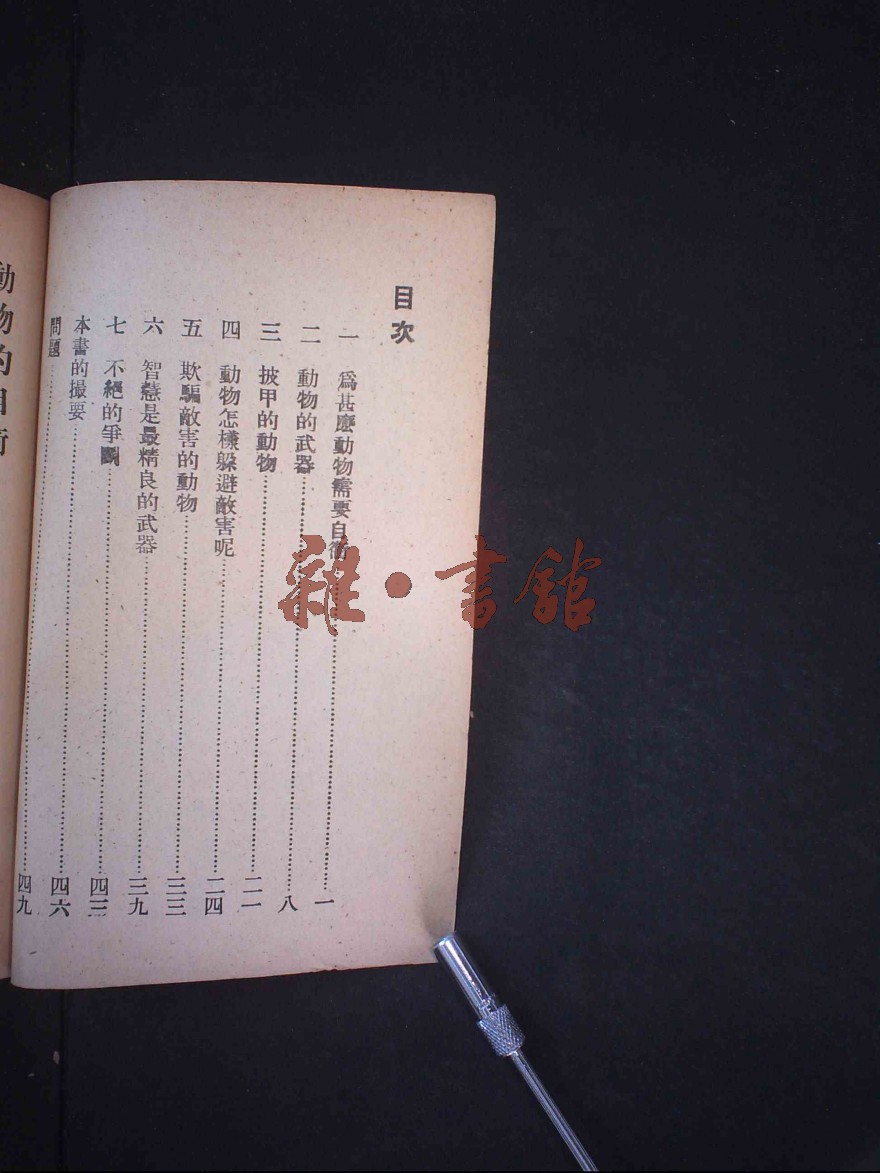 目次
一 爲甚麽動物需要自衛……一
二 動物的武器……八
三 披甲的動物……二一
四 動物怎樣躱避敵害呢……二四
五 欺騙敵害的動物……三三
六 智慧是最精良的武器……三九
七 不絕的爭鬭……四三
本書的撮要……四六
問題……四九
動物的自衛
雜·書館